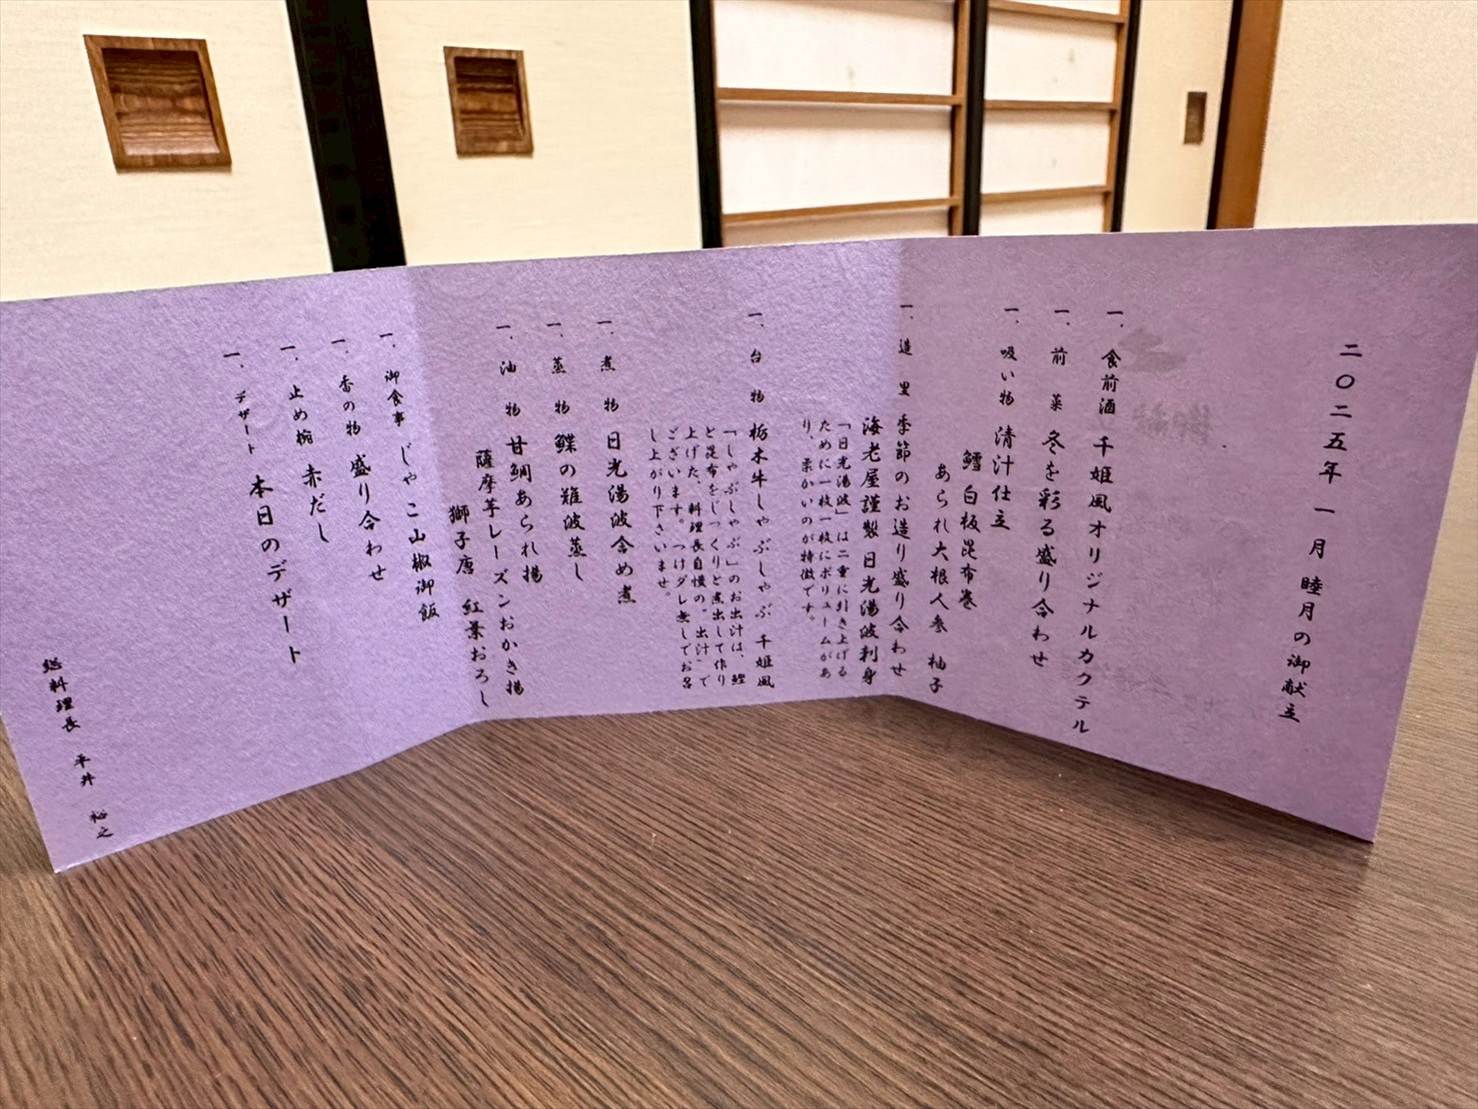 二〇二五年 一月 睦月の御献立
一、食前酒 千姫風オリジナルカクテル
一、前 菜 冬を彩る盛り合わせ
一、吸い物 清汁仕立
鱈白板昆布巻
あられ大根人参 柚子
一、造 里 季節のお造り盛り合わせ
海老屋謹製 日光湯波刺身
「日光湯波」は二重に引き上げる
ために一枚一枚にボリュームがあ
り、柔かいのが特徴です。
一、台 物 栃木牛しゃぶしゃぶ 千姫風
「しゃぶしゃぶ」のお出汁は、鰹
と昆布をじっくりと煮出して作り
上げた、料理長自慢の〝出汁〟で
ございます。つけダレ無しでお召
し上がり下さいませ。
一、煮 物 日光湯波含め煮
一、蒸 物 鰈の難波蒸し
一、油 物 甘鯛あられ揚
薩摩芋レーズンおかき揚
獅子唐 紅葉おろし
一、御食事 じゃこ山椒御飯
一、香の物 盛り合わせ
一、止め椀 赤だし
一、デザート 本日のデザート
総料理長 平井 裕之